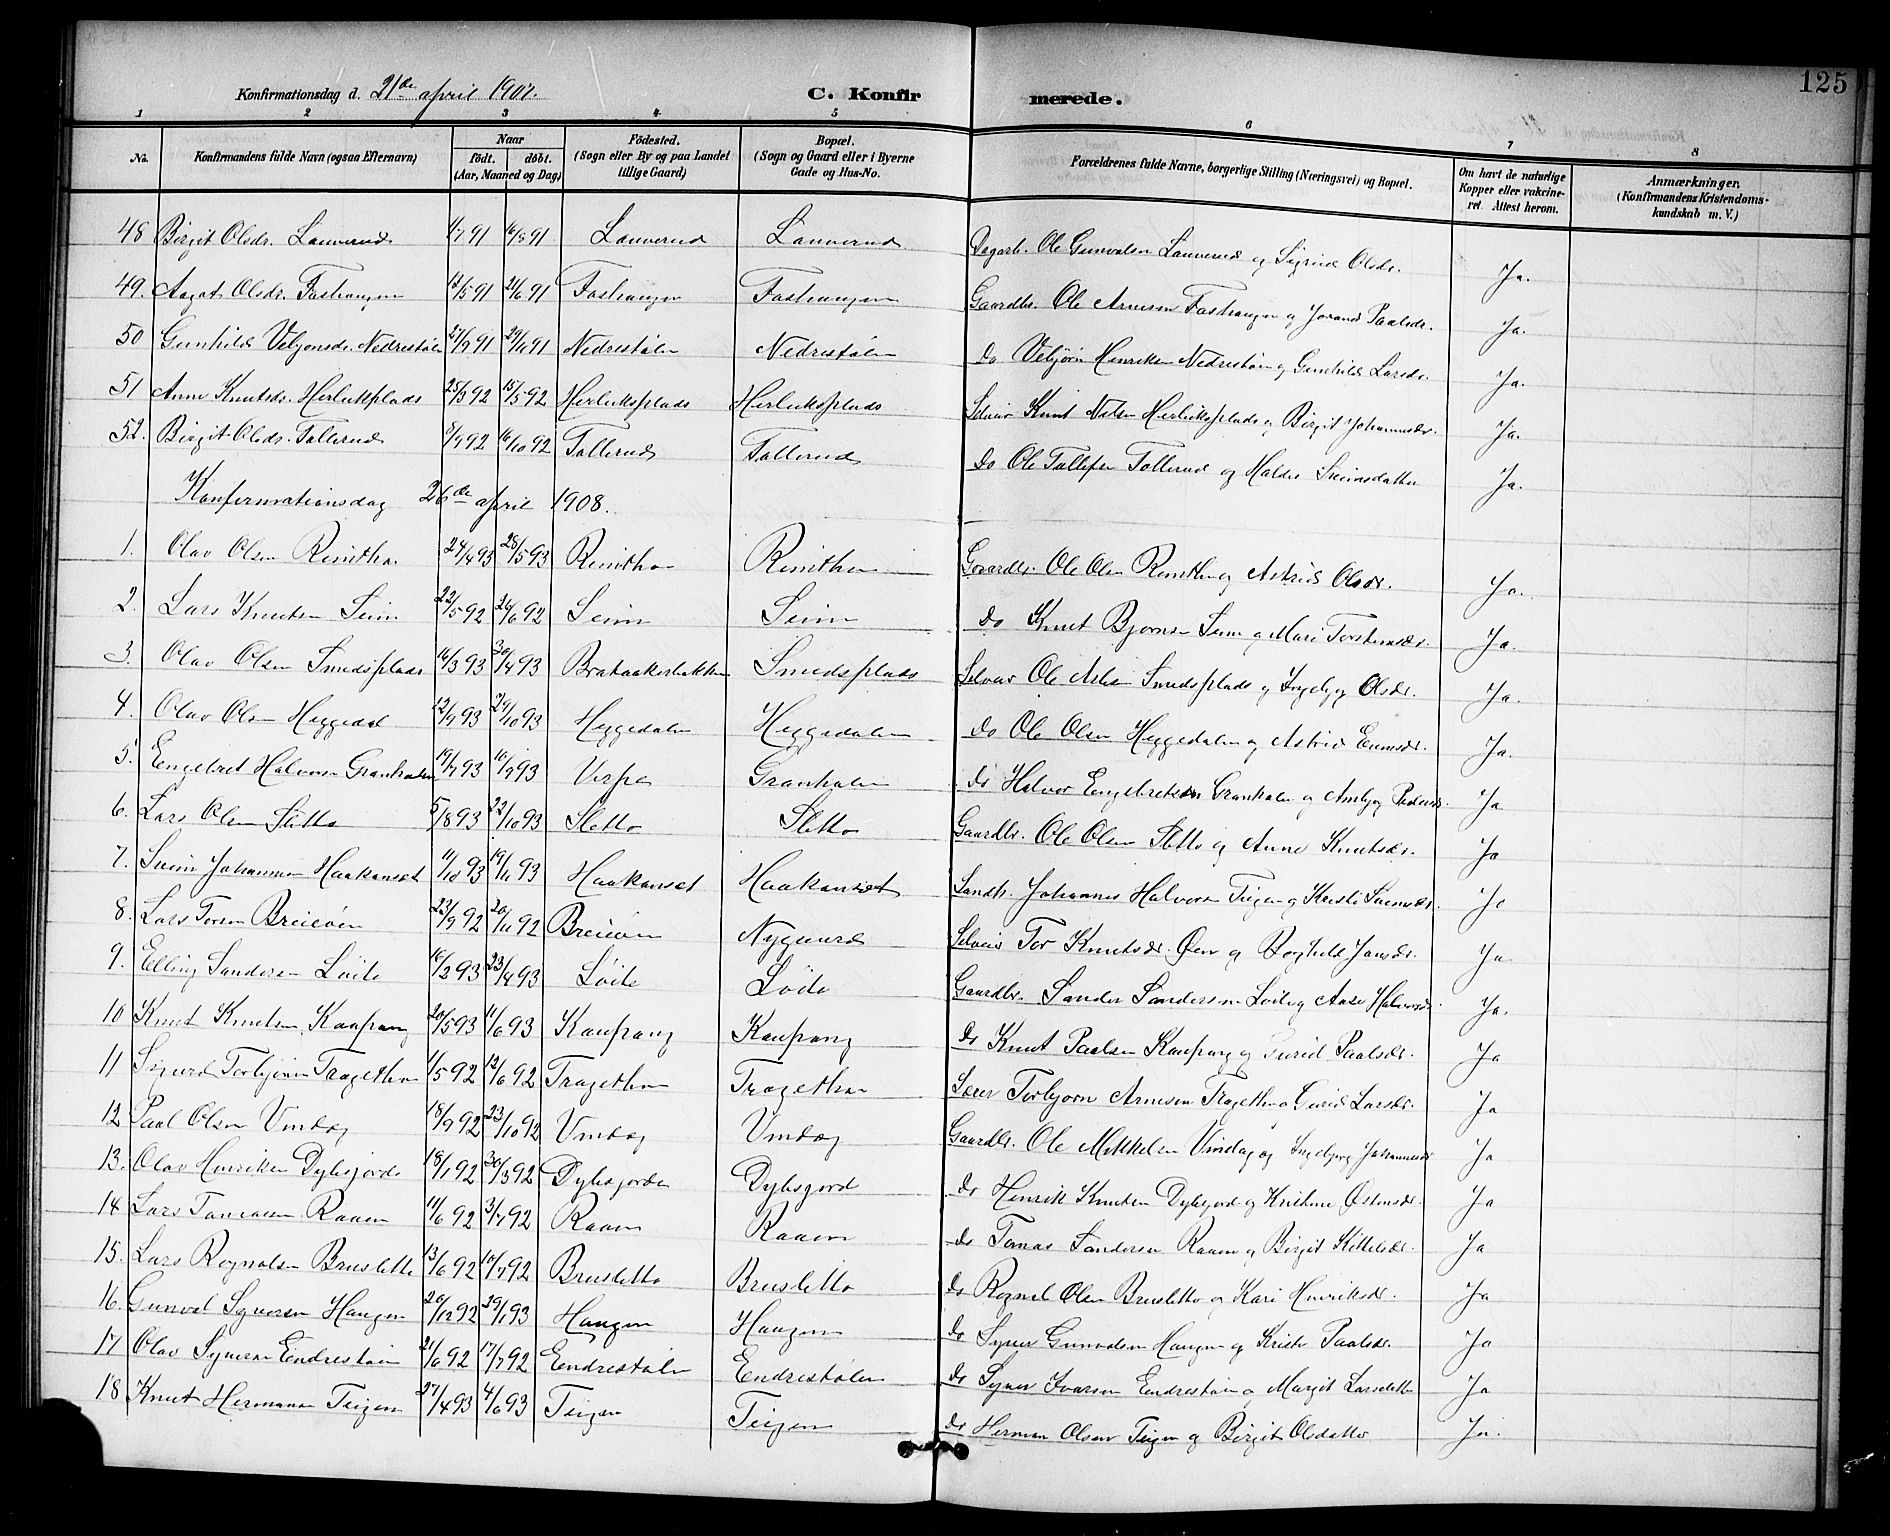 125
Konfirmationsdag d. 21de april 1907. C. Konfirmerede.
1 2 3 4. 5 6 7 8
No. Konfirmandens fulde Navn (ogsaa Efternavn) Naar født. døbt. (Aar, Maaned og Dag) Födested. (Sogn eller By og paa Landet tillige Gaard) Bopæl. (Sogn og Gaard eller i Byerne Gade og Hus-No. Forældrenes fulde Navne, borgerlige Stilling (Næringsvei) og Bopæl. Om havt de naturlige Kopper eller vakcineret. Attest herom. Anmærkninger. (Konfirmandens Kristendomskundskab m. V.)
48 Birgit Olsdr. Lauverud 91 16/8 91 Lauverud Lauverud Dagarb. Ole Gunvalsen Lauverud og Sigrid Olsdr. Ja.
49. Aagot Olsdr. Fostraugen 12/5 91 21/6 91 Fostraugen Fostraugen Gaardbr. Ole Arnesen Fostraugen og Jorand Paalsdr. Ja.
50 Gunhild Vebjonsdr. Nedrestølen 27/9 91 29/11 91 Nedrestølen Nedrestølen do Vebjørn Henriksen Nedrestøen og Gunhild Larsdr. Ja.
51 Anne Knutsdr. Herlieksplads 25/3 92 15/5 92 Herlieksplads Herlieksplads Selveier Knut Nilsen Herlieksplads og Birgit Johannesdr. Ja.
52. Birgit Olsdr. Tollerud 92 16/10 92 Tollerud Tollerud do Ole Tollefsen Tollerud og Haldis Sveinsdatter Ja.
Konfirmationsdag 26de april 1908.
1. Olav Olsen Rimthon 24/4 93 28/5 93 Rimthon Rimthon Gaardbr. Ole Olsen Rimthon og Astrid Olsdr. Ja.
2. Lars Knutsen Seim 22/5 92 26/6 92 Seim Seim do Knut Bjornsen Seim og Mari Torsteinsdr. Ja.
3. Olav Olsen Smedsplads 16/3 93 30/4 93 Brataakerbakken Smedsplads Selveier Ole Asle Smedsplads og Ingebjg Olsdr. Ja.
4. Olav Olsen Heggedal 12/9 93 29/10 93 Heggedalen Heggedalen do Ole Olsen Heggedalen og Astrid Ja.
5. Engebret Halvorsen Granhalen 19/7 93 10/9 93 Vespe Granhalen do Halvor Engebretsen Granhalen og Ambjog Pedersdr. Ja
6. Lars Olsen Sletto 5/8 93 22/10 93 Sletto Sletto Gaardbr. Ole Olsen Sletto og Anne Knutsdr. Ja
7. Svein Johannesen Haakanset 11/10 93 19/11 93 Haakanset Haakanset Landh. Johannes Halvorsen Teigen og Kristi Sveinsdr. Ja
8. Lars Torsen Breieøien 23/9 92 20/11 92 Breieøien Nygaard Selveier Tor Knutsdr. Øien og Ragnhild Jansdr. Ja
9. Elling Sandersen Löite 16/2 93 23/4 93 Löite Löite Gaardbr. Sander Sandersen Löite og Aase Halvorsdr. Ja.
10 Knut Knutsen Kaupang 20/5 93 11/6 93 Kaupang Kaupang do Knut Paalsen Kaupang og Turid Paalsdr. Ja
11 Sigurd Torbjörnsen Tragethon 1/5 92 12/6 92 Tragethon Tragethon Lærer Torbjorn Arnesen Tragethon og Gurid Larsdr. Ja
12 Paal Olsen Vindeg 18/9 92 23/10 92 Vindeg Vindeg Gaardbr. Ole Mikkelsen Vindeg og Ingebjorg Johannesdr. Ja
13. Olav Henriksen Dybsjorde 18/1 92 30/3 92 Dybsjorden Dybsgord do Henrik Knutsen Dybsjord og Kristine Østensdr. Ja
14 Lars Tomassen Raaen 11/6 92 3/7 92 Raaen Raaen do Tomas Sandersen Raaen og Birgit Kittelsdr. Ja
15. Lars Rognalsen Brusletto 13/6 92 10/7 92 Brusletto Brusletto do Rognal Olsen Brusletto og Kari Henriksdr. Ja
16. Gunval Syversen Haugen 20/12 92 29/1 93 Haugen Haugen do Syver Gunvalsen Haugen og Kristi Paalsdr. Ja
17 Olav Syversen Endrestøien 21/6 92 17/7 92 Endrestølen Endrestølen do Syver Ivarsen Endrestøien og Margit Larsdatter Ja
18 Knut Hermansen Teigen 27/4 93 4/6 93 Teigen Teigen do Herman Olsen Teigen og Birgit Olsdatter Ja.